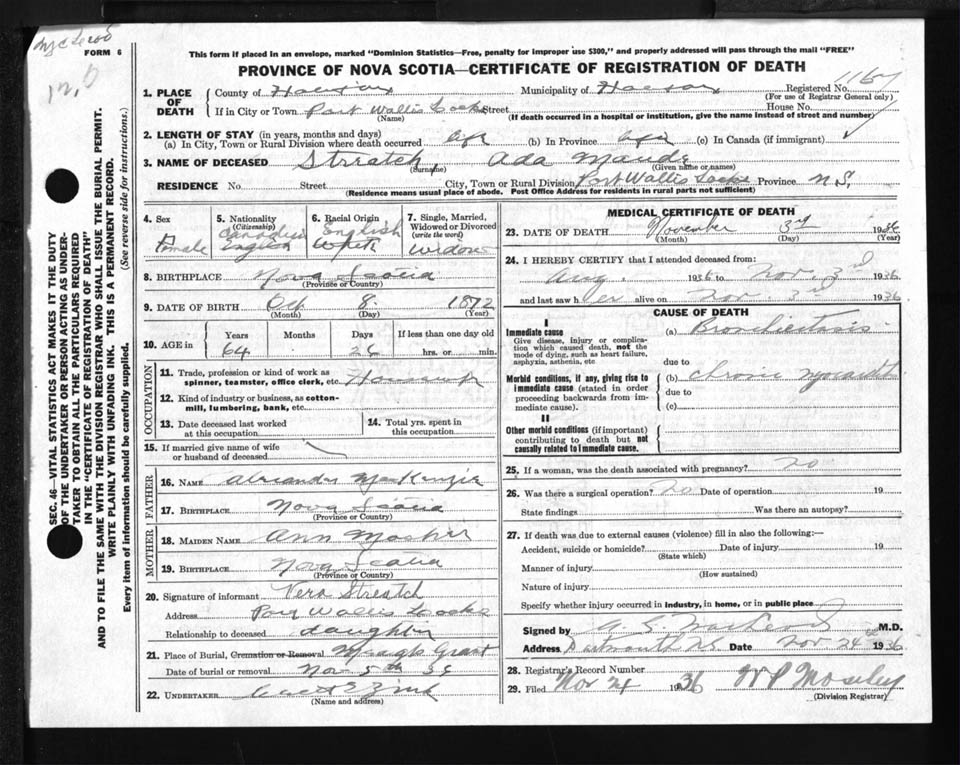 FORM 6
This form if placed in an envelope, marked "Dominion Statistics—Free, penalty for improper use $300," and properly addressed will pass through the mail "FREE"
PROVINCE OF NOVA SCOTIA—CERTIFICATE OF REGISTRATION OF DEATH
SEC. 46—VITAL STATISTICS ACT MAKES IT THE DUTY
OF THE UNDERTAKER OR PERSON ACTING AS UNDER-
TAKER TO OBTAIN ALL THE PARTICULARS REQUIRED
IN THE "CERTIFICATE OF REGISTRATION OF DEATH"
AND TO FILE THE SAME WITH THE DIVISION REGISTRAR WHO SHALL ISSUE THE BURIAL PERMIT.
WRITE PLAINLY WITH UNFADING INK. THIS IS A PERMANENT RECORD.
Every item of information should be carefully supplied. (See reverse side for instructions.)
1. PLACE OF DEATH
County of Halifax Municipality of Halifax Registered No.
(For use of Registrar General only)
If in City or Town Port Wallis Locks Street House No.
(Name) (If death occurred in a hospital or institution, give the name instead of street and number)
2. LENGTH OF STAY (in years, months and days)
(a) In City, Town or Rural Division where death occurred life (b) In Province life (c) In Canada (if immigrant)
3. NAME OF DECEASED Streatch, Ada Maude
(Surname) (Given name or names)
RESIDENCE No. Street City, Town or Rural Division Port Wallis Locks Province N.S.
(Residence means usual place of abode. Post Office Address for residents in rural parts not sufficient)
4. Sex Female
5. Nationality (Citizenship) Canadian English
6. Racial Origin English White
7. Single, Married, Widowed or Divorced (write the word) Widow
8. BIRTHPLACE Nova Scotia
(Province or Country)
9. DATE OF BIRTH Oct 8 1872
(Month) (Day) (Year)
10. AGE in Years 64 Months Days 26 If less than one day old hrs. or min.
OCCUPATION
11. Trade, profession or kind of work as spinner, teamster, office clerk, etc.
12. Kind of industry or business, as cotton-mill, lumbering, bank, etc.
13. Date deceased last worked at this occupation
14. Total yrs. spent in this occupation
15. If married give name of wife or husband of deceased
FATHER
16. NAME Alexander MacKenzie
17. BIRTHPLACE Nova Scotia
(Province or Country)
MOTHER
18. MAIDEN NAME Ann Mosher
19. BIRTHPLACE Nova Scotia
(Province or Country)
20. Signature of informant Vera Streatch
Address Port Wallis Locks
Relationship to deceased daughter
21. Place of Burial, Cremation or Removal Grant
Date of burial or removal Nov 5th 36
22. UNDERTAKER Zink
(Name and address)
MEDICAL CERTIFICATE OF DEATH
23. DATE OF DEATH November 3rd 1936
(Month) (Day) (Year)
24. I HEREBY CERTIFY that I attended deceased from:
Aug. 1936 to Nov. 3rd 1936
and last saw her alive on Nov. 3rd 1936
CAUSE OF DEATH
I
Immediate cause
Give disease, injury or complication which caused death, not the mode of dying, such as heart failure, asphyxia, asthenia, etc
(a) Bronchiectasis
due to
Morbid conditions, if any, giving rise to immediate cause (stated in order proceeding backwards from immediate cause).
(b) Chronic Myocarditis
due to
(c)
II
Other morbid conditions (if important) contributing to death but not causally related to immediate cause.
25. If a woman, was the death associated with pregnancy? no
26. Was there a surgical operation? no Date of operation 19
State findings Was there an autopsy?
27. If death was due to external causes (violence) fill in also the following:—
Accident, suicide or homicide? Date of injury 19
(State which)
Manner of injury
(How sustained)
Nature of injury
Specify whether injury occurred in industry, in home, or in public place
Signed by M.D.
Address Dartmouth N.S. Date Nov 24th 1936
28. Registrar's Record Number
29. Filed Nov 24 1936 W P Moseley
(Division Registrar)